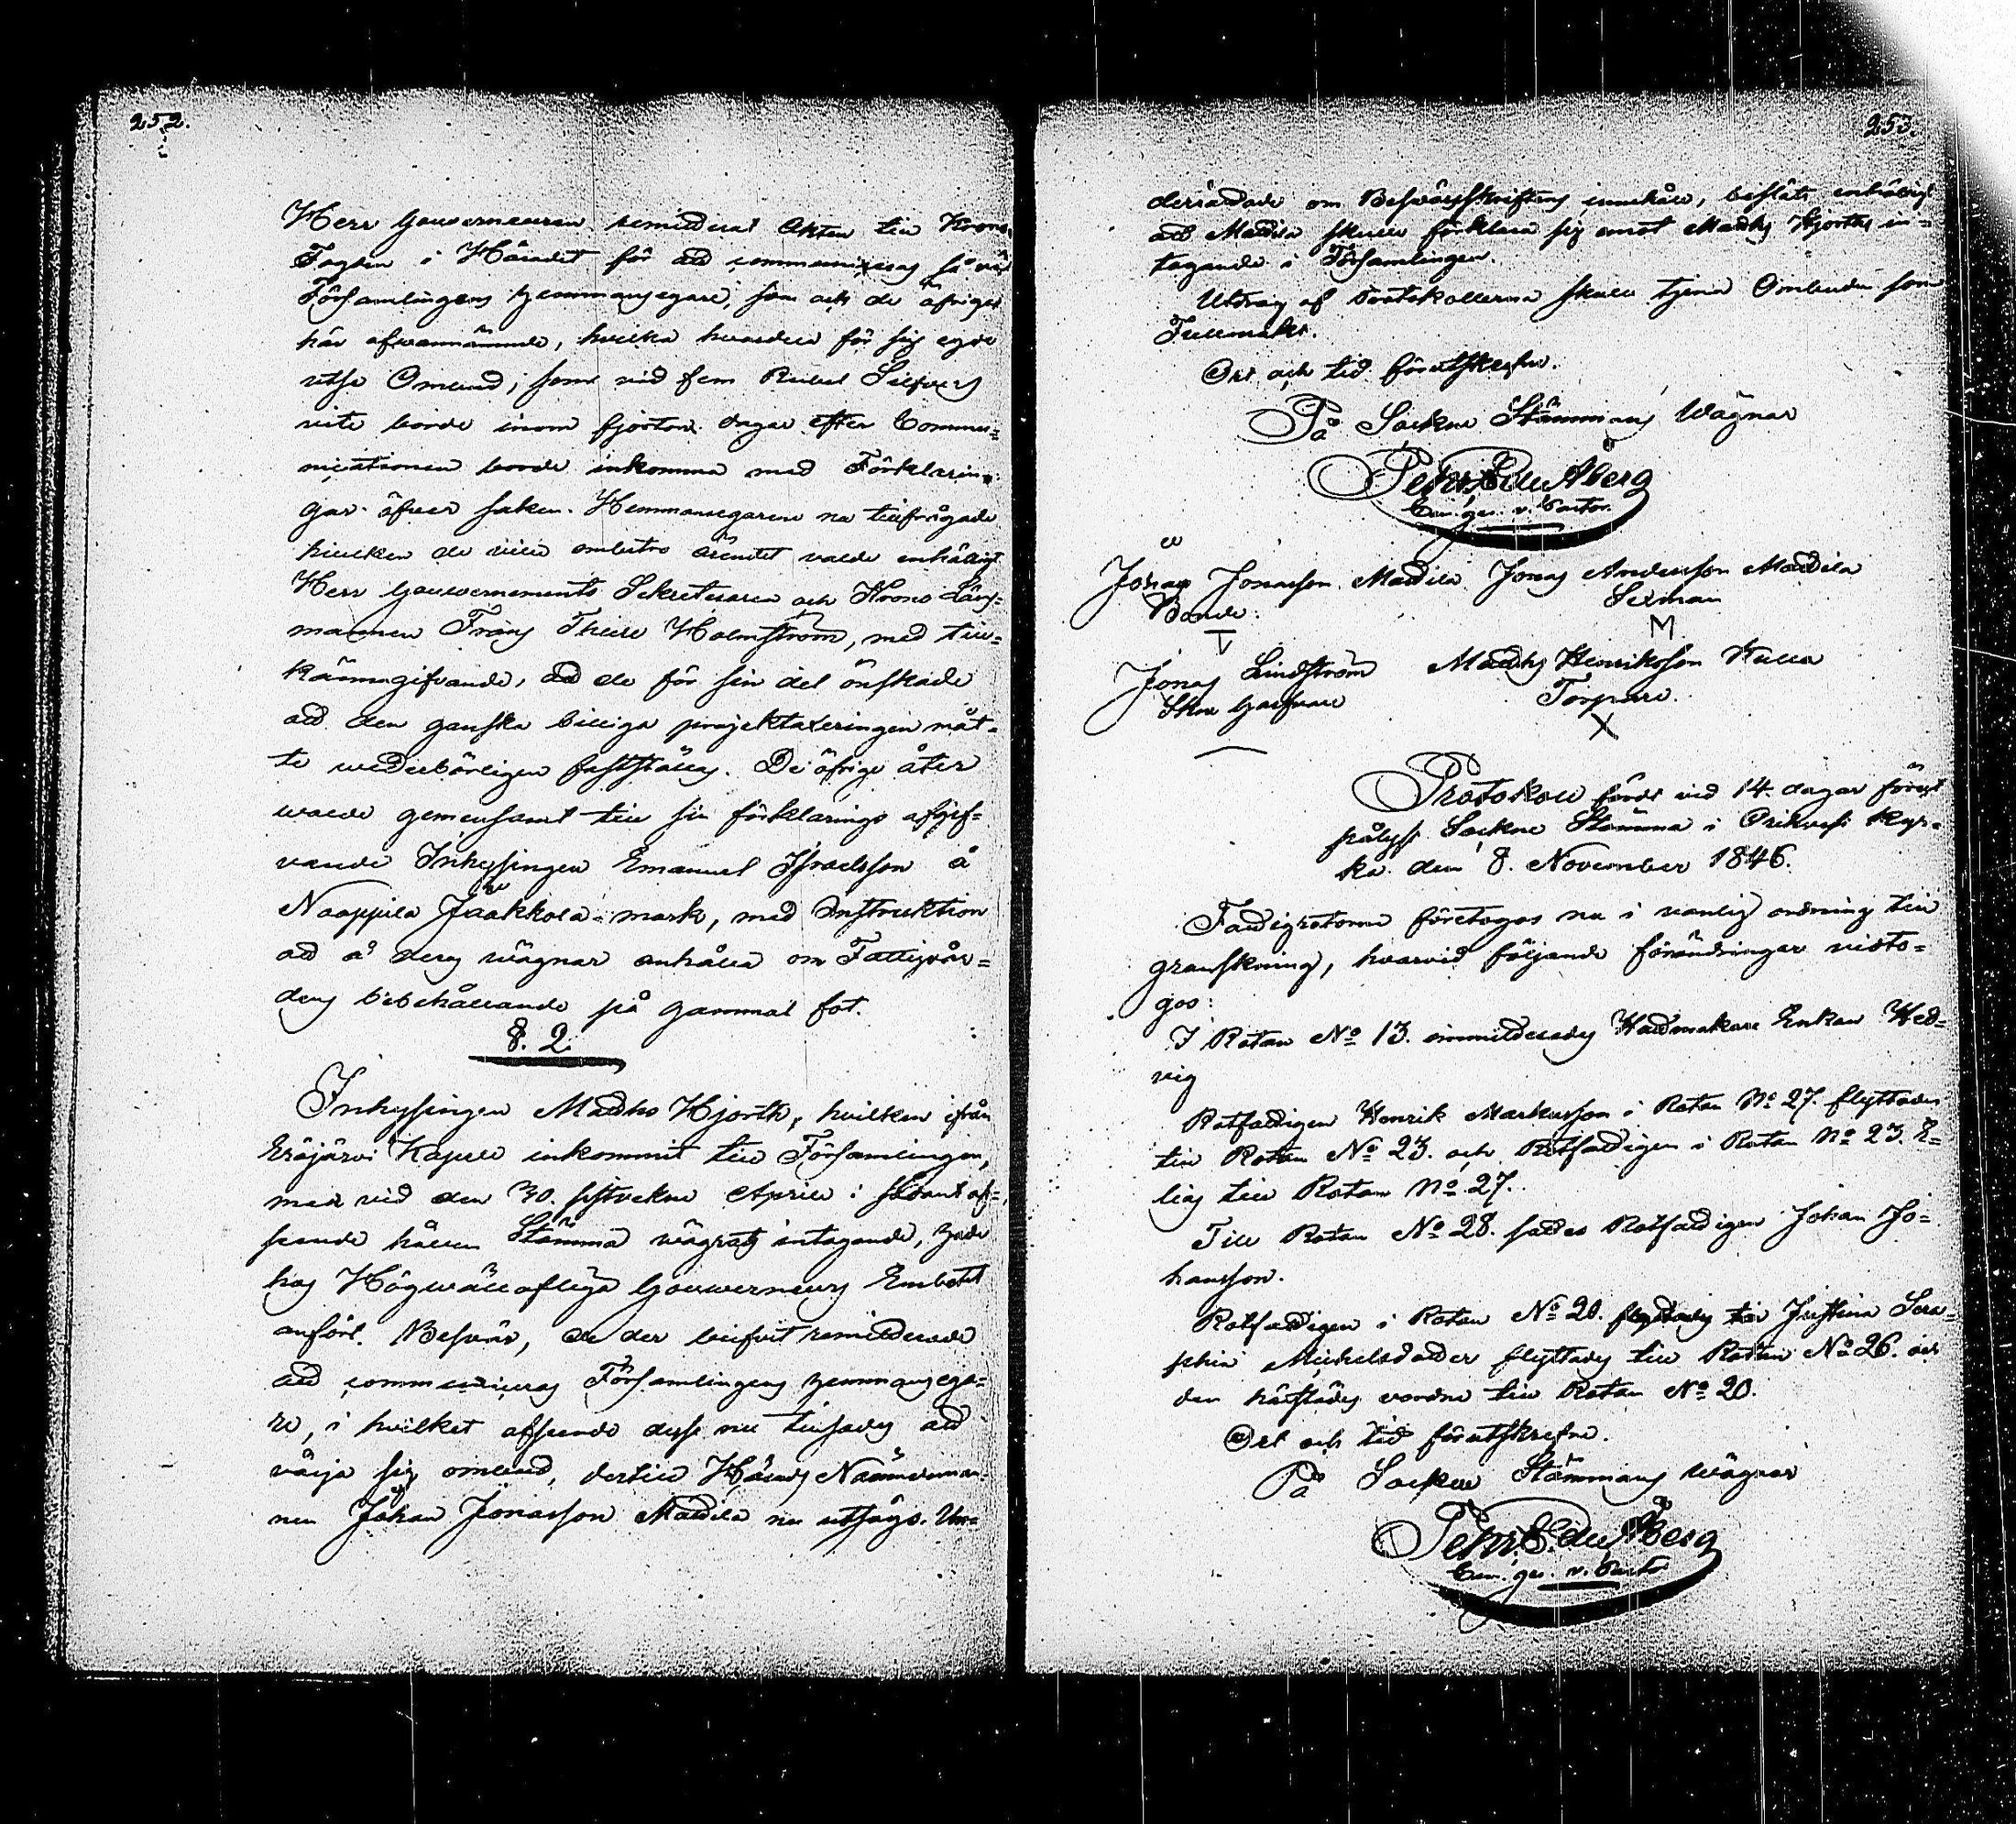 252.
Herr Gouverneuren remitterat Akten till Krono
Fogden i Häradet för att communiceras så väl
Församlingens hemmansegare, som och de öfriga
här ofvannämnde, hvilka hvardera för sig egde
utse Ombud, som vid fem Rubel Silfvers
vite borde inom fjorton dagar efter Commu=
nicationen borde inkomma med Förklarin=
gar öfver saken. Hemmansegarene nu tillfrågade
hvilken de ville ombetro ärendet valde enhälligt
Herr Gouvernements Sekreteraren och Krono Läns=
mannen Frans Holmström, med till=
kännagifvande, att de för sin del önskade
att den ganska billiga projekttaxeringen måt=
te vederbörligen fastställas. De öfrige åter
valde gemensamt till sin förklarings afgif=
vande Inhysingen Emanuel Israelsson å
Naappila Jaakkola mark, med Instruktion
att å deras vägnar anhålla om Fattigvår=
dens bibehållande på gammal fot.
§. 2.
Inhysingen Matths Hjorth, hvilken ifrån
Eräjärvi Kapell inkommit till Församlingen,
men vid den 30. sistvekne April i sådant af=
seende hållen Stämma vägrats intagande, hade
hos Högvällofliga Gouverneurs Embetet
anfört Besvär, de der blifvit remitterade
att communiceras Församlingens hemmansega=
re, i hvilket afseende desse nu tillsades att
välja sig ombud, dertill Härads Nämndeman
nen Johan Jonasson Mattila nu utsågs. Un=
253.
derrättade om Besvärsskriftens innehåll, beslöts enhälligt
att Mattila skulle förklara sig emot Matths Hjorths in=
tagande i Församlingen.
Utdrag af Protokollerna skulle tjena Ombuden som
Fullmakt.
Ort och tid förutskrefne.
På Sockne Stämmans Wägnar
Pehr Edv. Åberg
v. Pastor.
Johan Jonasson Mattila Jonas Andersson Mattila
Bonde. Sexman
M
Jonas Lindström Matths Henriksson Kulla
Torpare.
X
Protokoll fördt vid 14. dagar förut
pålyst Sockne Stämma i Orihvesi Kyr=
ka den 8. November 1846.
Fattigrotarne företogos nu i vanlig ordning till
granskning, hvarvid följande förändringar vidto=
gos:
I Rotan No 13. inmitterades Hattmakare Enkan Hed=
vig
Rotfattigen Henrik Markusson i Rotan No 27. flyttades
till Rotan No 23. och Rotfattigen i Rotan No 23. E=
lias till Rotan No 27.
Till Rotan No 28. sattes Rotfattigen Johan Jo=
hansson.
Rotfattigen i Rotan No 20. Justina Sera=
phia Michelsdotter flyttades till Rotan No 26. och
den härstädes vordne till Rotan No 20.
Ort och tid förutskrefne.
På Sockne Stämmans Wägnar
Pehr Edv. Åberg
v. Pastor